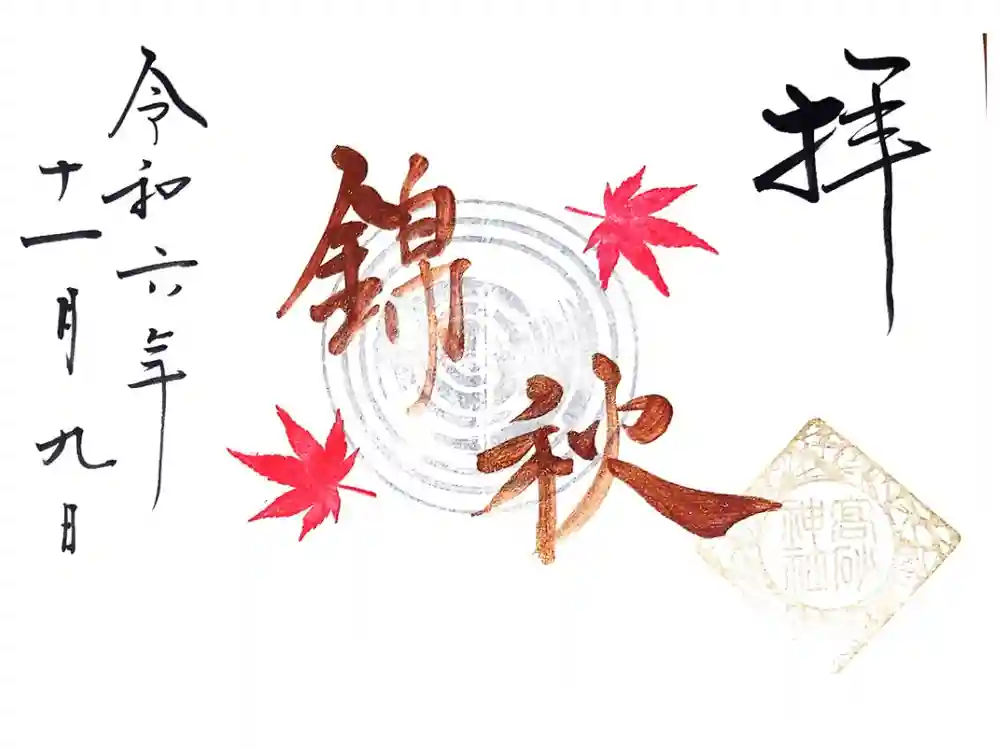 拝
錦
秋
高砂
神社
令和六年
十一月九日